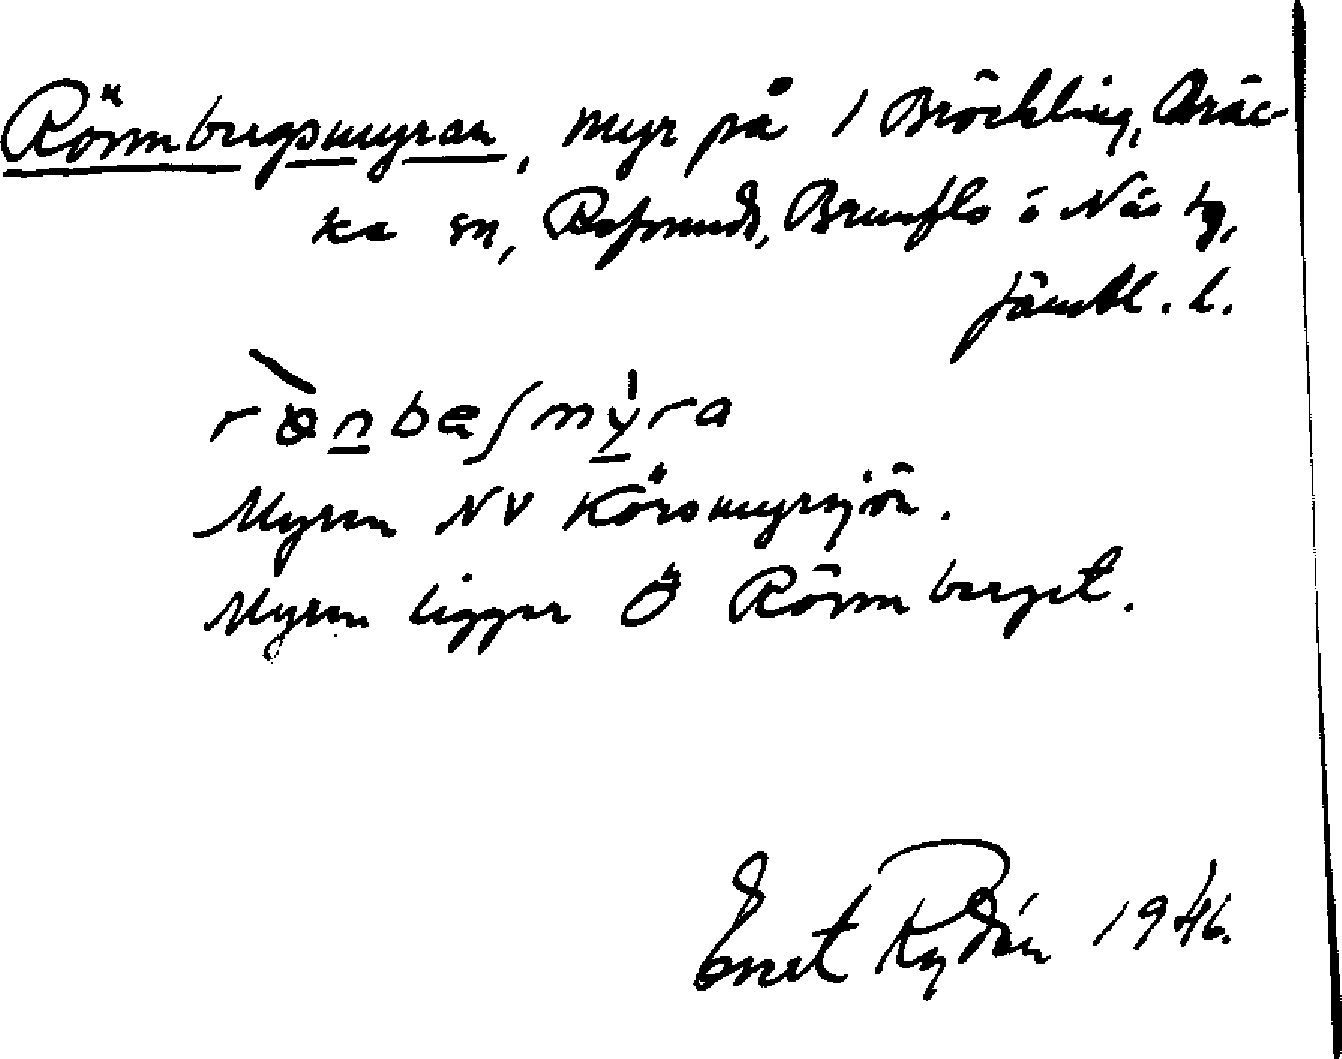 Rönnbergsmyran, myr på 1 Bröckling, Bräc-
ka sn, Refsunds, Brunflo o Näs tg,
Jämtl. l.
r ö̀ n b e ʃ m y̍ r a
Myren NV Körsmyrsjön.
Myren ligger Ö Rönnberget.
Ernst Rydén 1946.